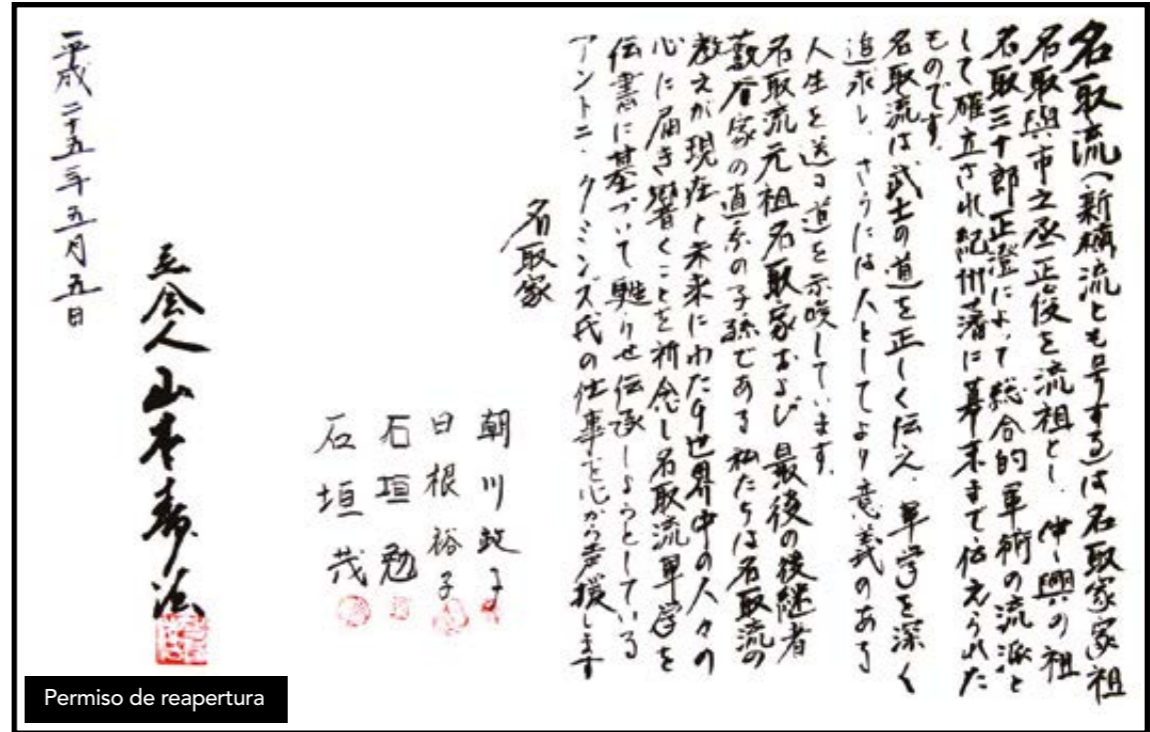 名取流(新楠流とも号する)は名取家家祖
名取與市之丞正俊を流祖とし、中興の祖
名取三十郎正澄によって総合的軍術の流派と
して確立され紀州藩に幕末まで伝えられた
ものです。
名取流は武士の道を正しく伝え、軍学を深く
追求し、さらには人としてより意義のある
人生を送る道を示唆しています。
名取流元祖名取家および最後の後継者
藪谷家の直系の子孫である私たちは名取流の
教えが現在と未来にわたり世界中の人々の
心に届き響くことを祈念し名取流軍学を
伝書に基づいて甦りせ伝承しようとしている
アントニ・クミンズ氏の仕事を心から声援します
名取家
朝川政子
日根裕子
石垣勉
石垣茂
立会人 山本寿法
平成二十五年五月五日
Permiso de reapertura